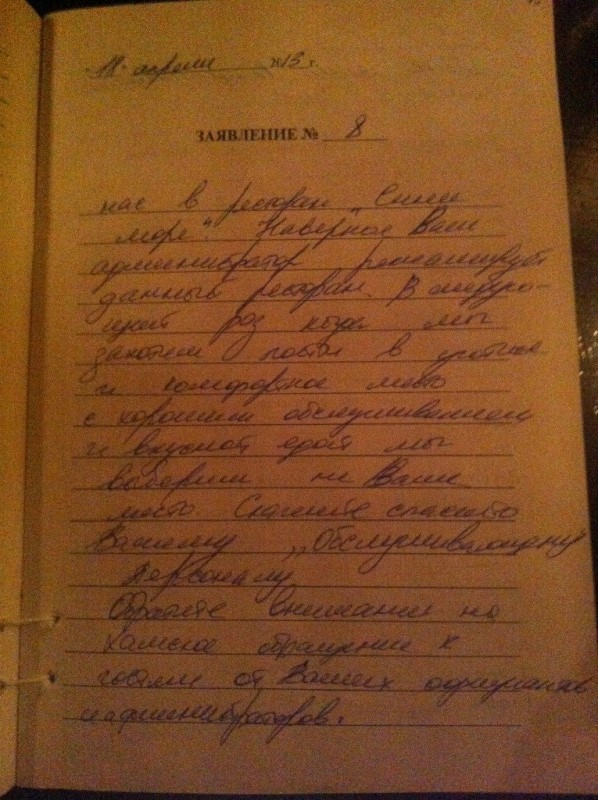 11. апреля 2013 г.
ЗАЯВЛЕНИЕ № 8
нас в ресторан „Синее
море". Наверное Ваш
администратор рекламирует
данный ресторан. В следую-
щий раз когда мы
захотим пойти в уютное
и комфортное место
с хорошим обслуживанием
и вкусной едой мы
выберим не Ваше
место. Скажите спасибо
Вашему „Обслуживающему
Персоналу
Обратите внимание на
хамское обращение к
гостям от Ваших официантов
и администраторов.